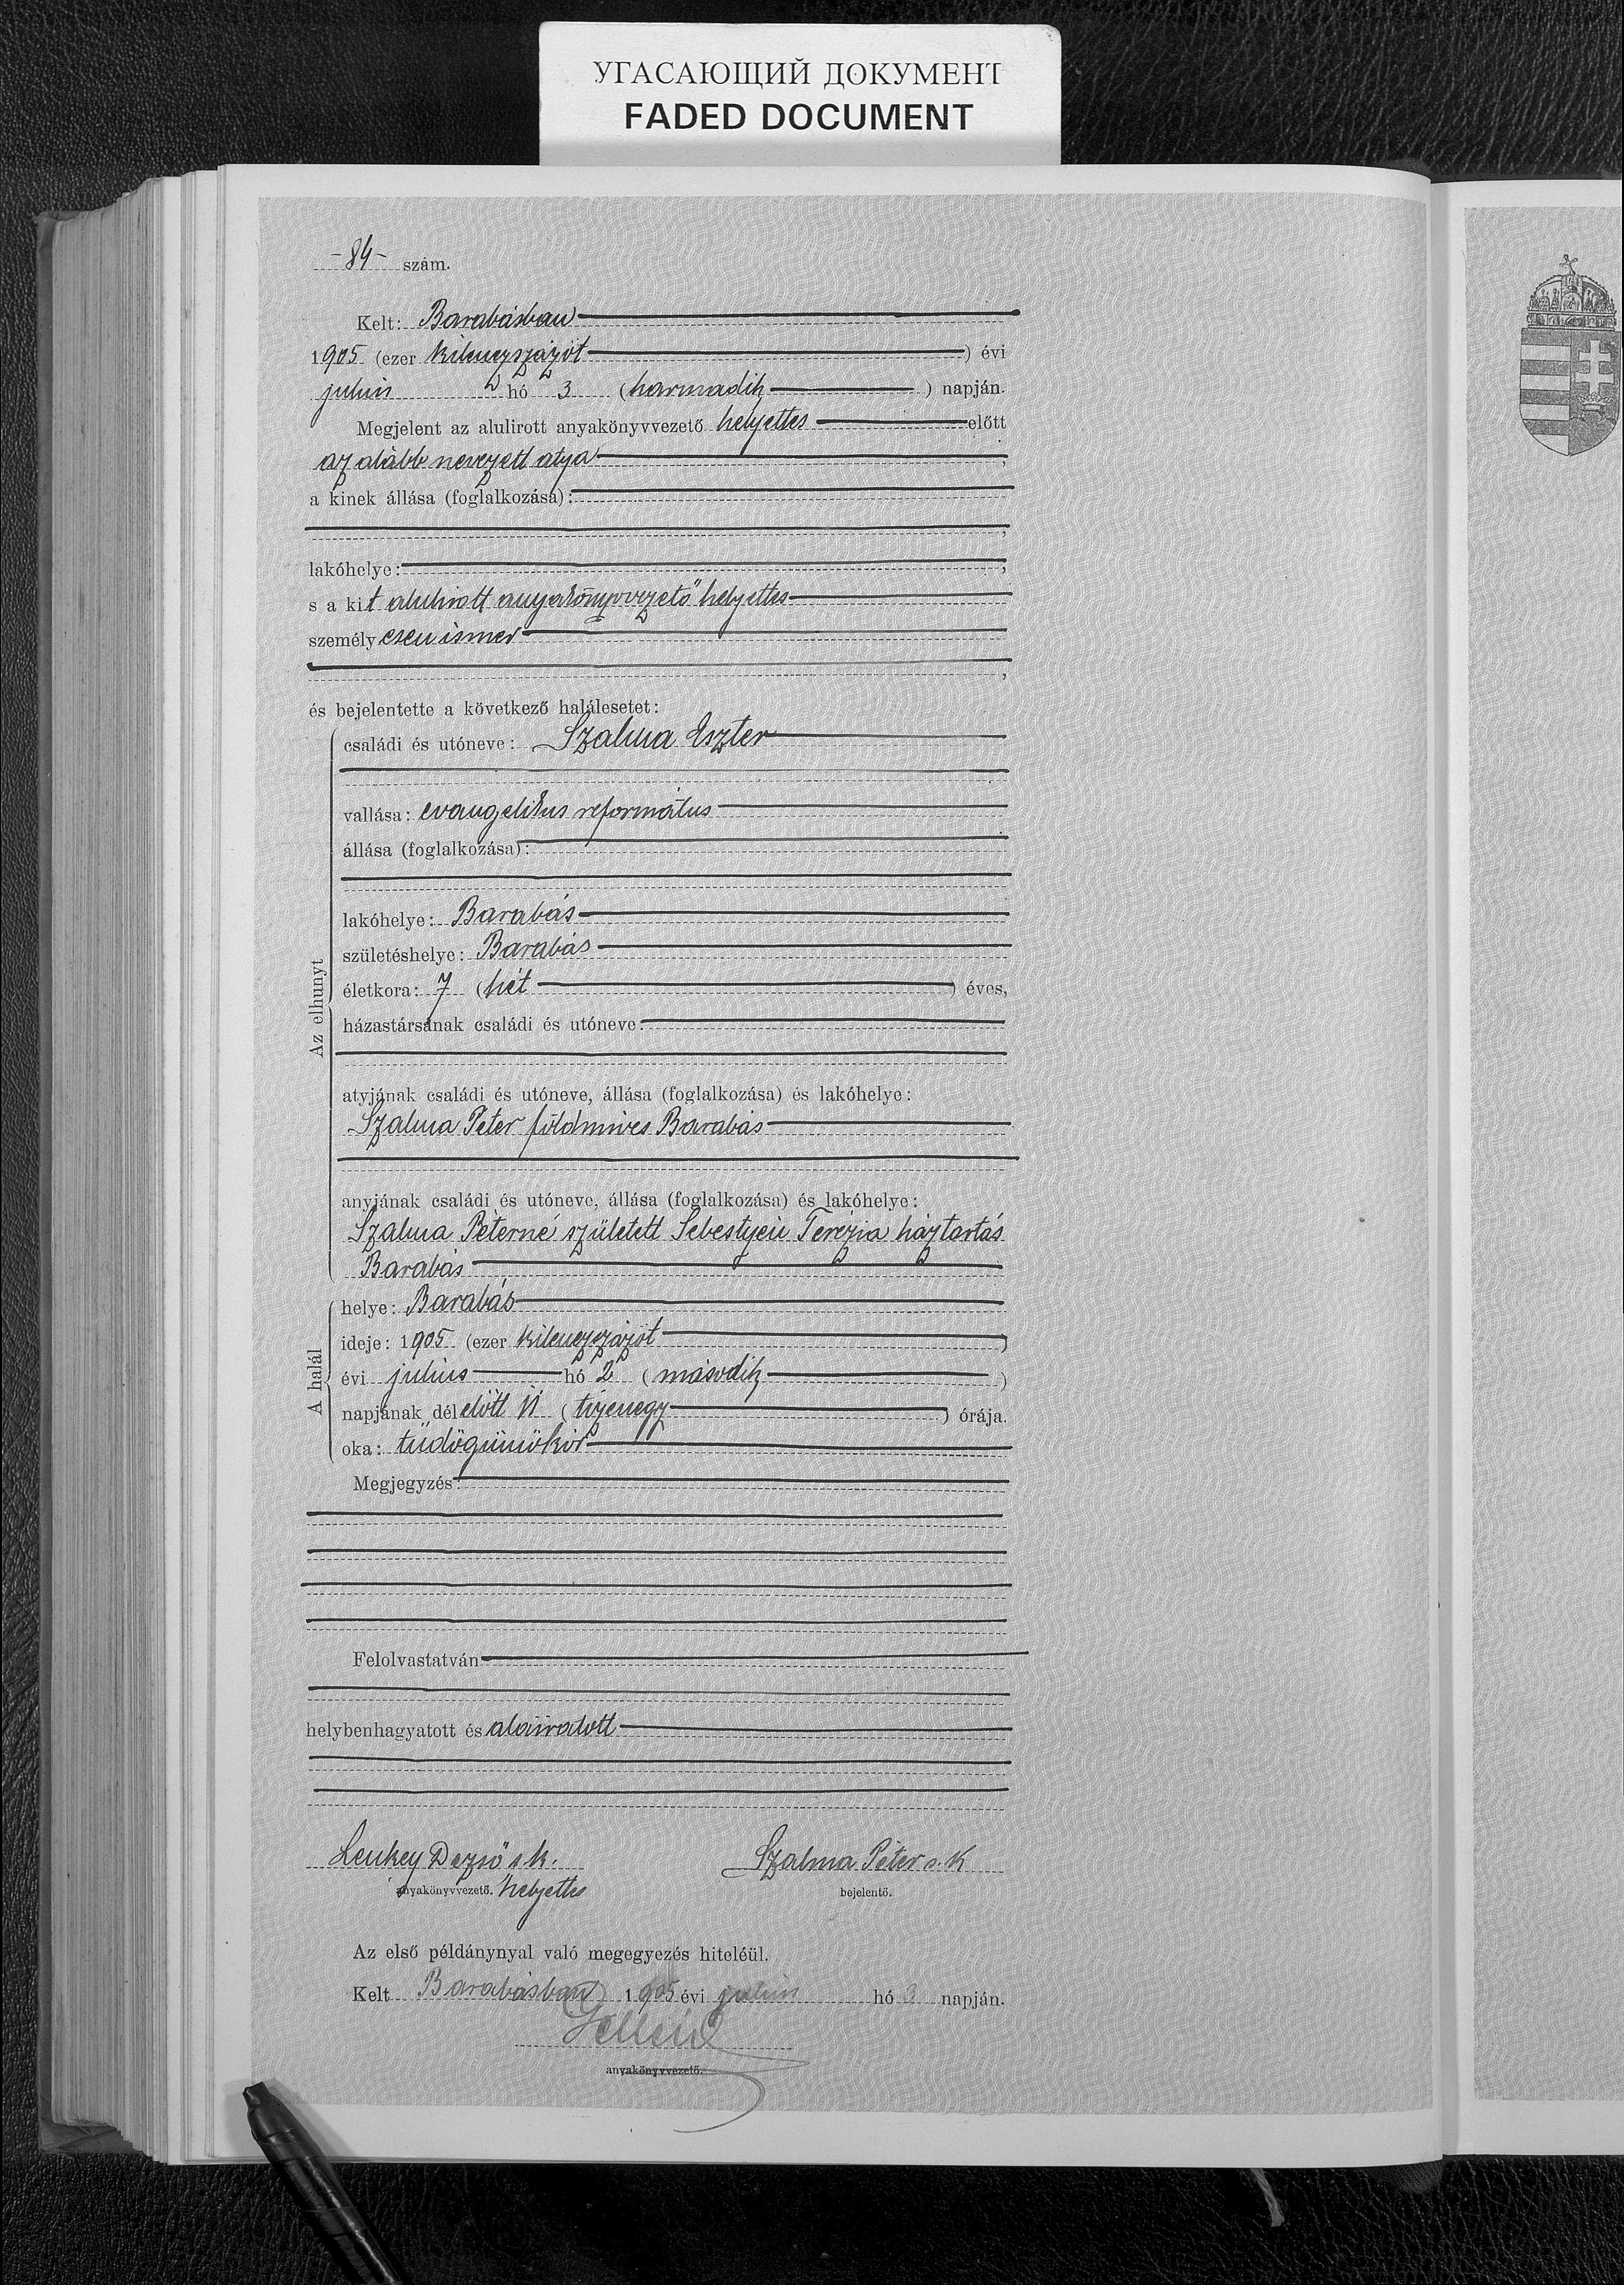 УГАСАЮЩИЙ ДОКУМЕНТ
FADED DOCUMENT
-84- szám.
Kelt: Barabásban
1905 (ezer kilenczszázöt) évi
julius hó 3 (harmadik) napján.
Megjelent az alulirott anyakönyvvezető helyettes előtt
az alább nevezett atya,
a kinek állása (foglalkozása):
lakóhelye:
s a kit alulirott anyakönyvvezető helyettes
személyesen ismer
és bejelentette a következő halálesetet:
Az elhunyt
családi és utóneve: Szalma Eszter
vallása: evangelikus református
állása (foglalkozása):
lakóhelye: Barabás
születéshelye: Barabás
életkora: 7 (hét) éves,
házastársának családi és utóneve:
atyjának családi és utóneve, állása (foglalkozása) és lakóhelye:
Szalma Péter földmives Barabás
anyjának családi és utóneve, állása (foglalkozása) és lakóhelye:
Szalma Péterné született Sebestyén Terézia háztartás
Barabás
A halál
helye: Barabás
ideje: 1905 (ezer kilenczszázöt)
évi julius hó 2 (második)
napjának délelőtt 11 (tizenegy) órája.
oka: tüdőgümőkór
Megjegyzés:
Felolvastatván
helybenhagyatott és aláiratott
Lenkey Dezső s.k. Szalma Péter s.k
anyakönyvvezető. helyettes bejelentő.
Az első példánynyal való megegyezés hiteléül.
Kelt Barabásban 1905 évi julius hó 3 napján.
anyakönyvvezető.